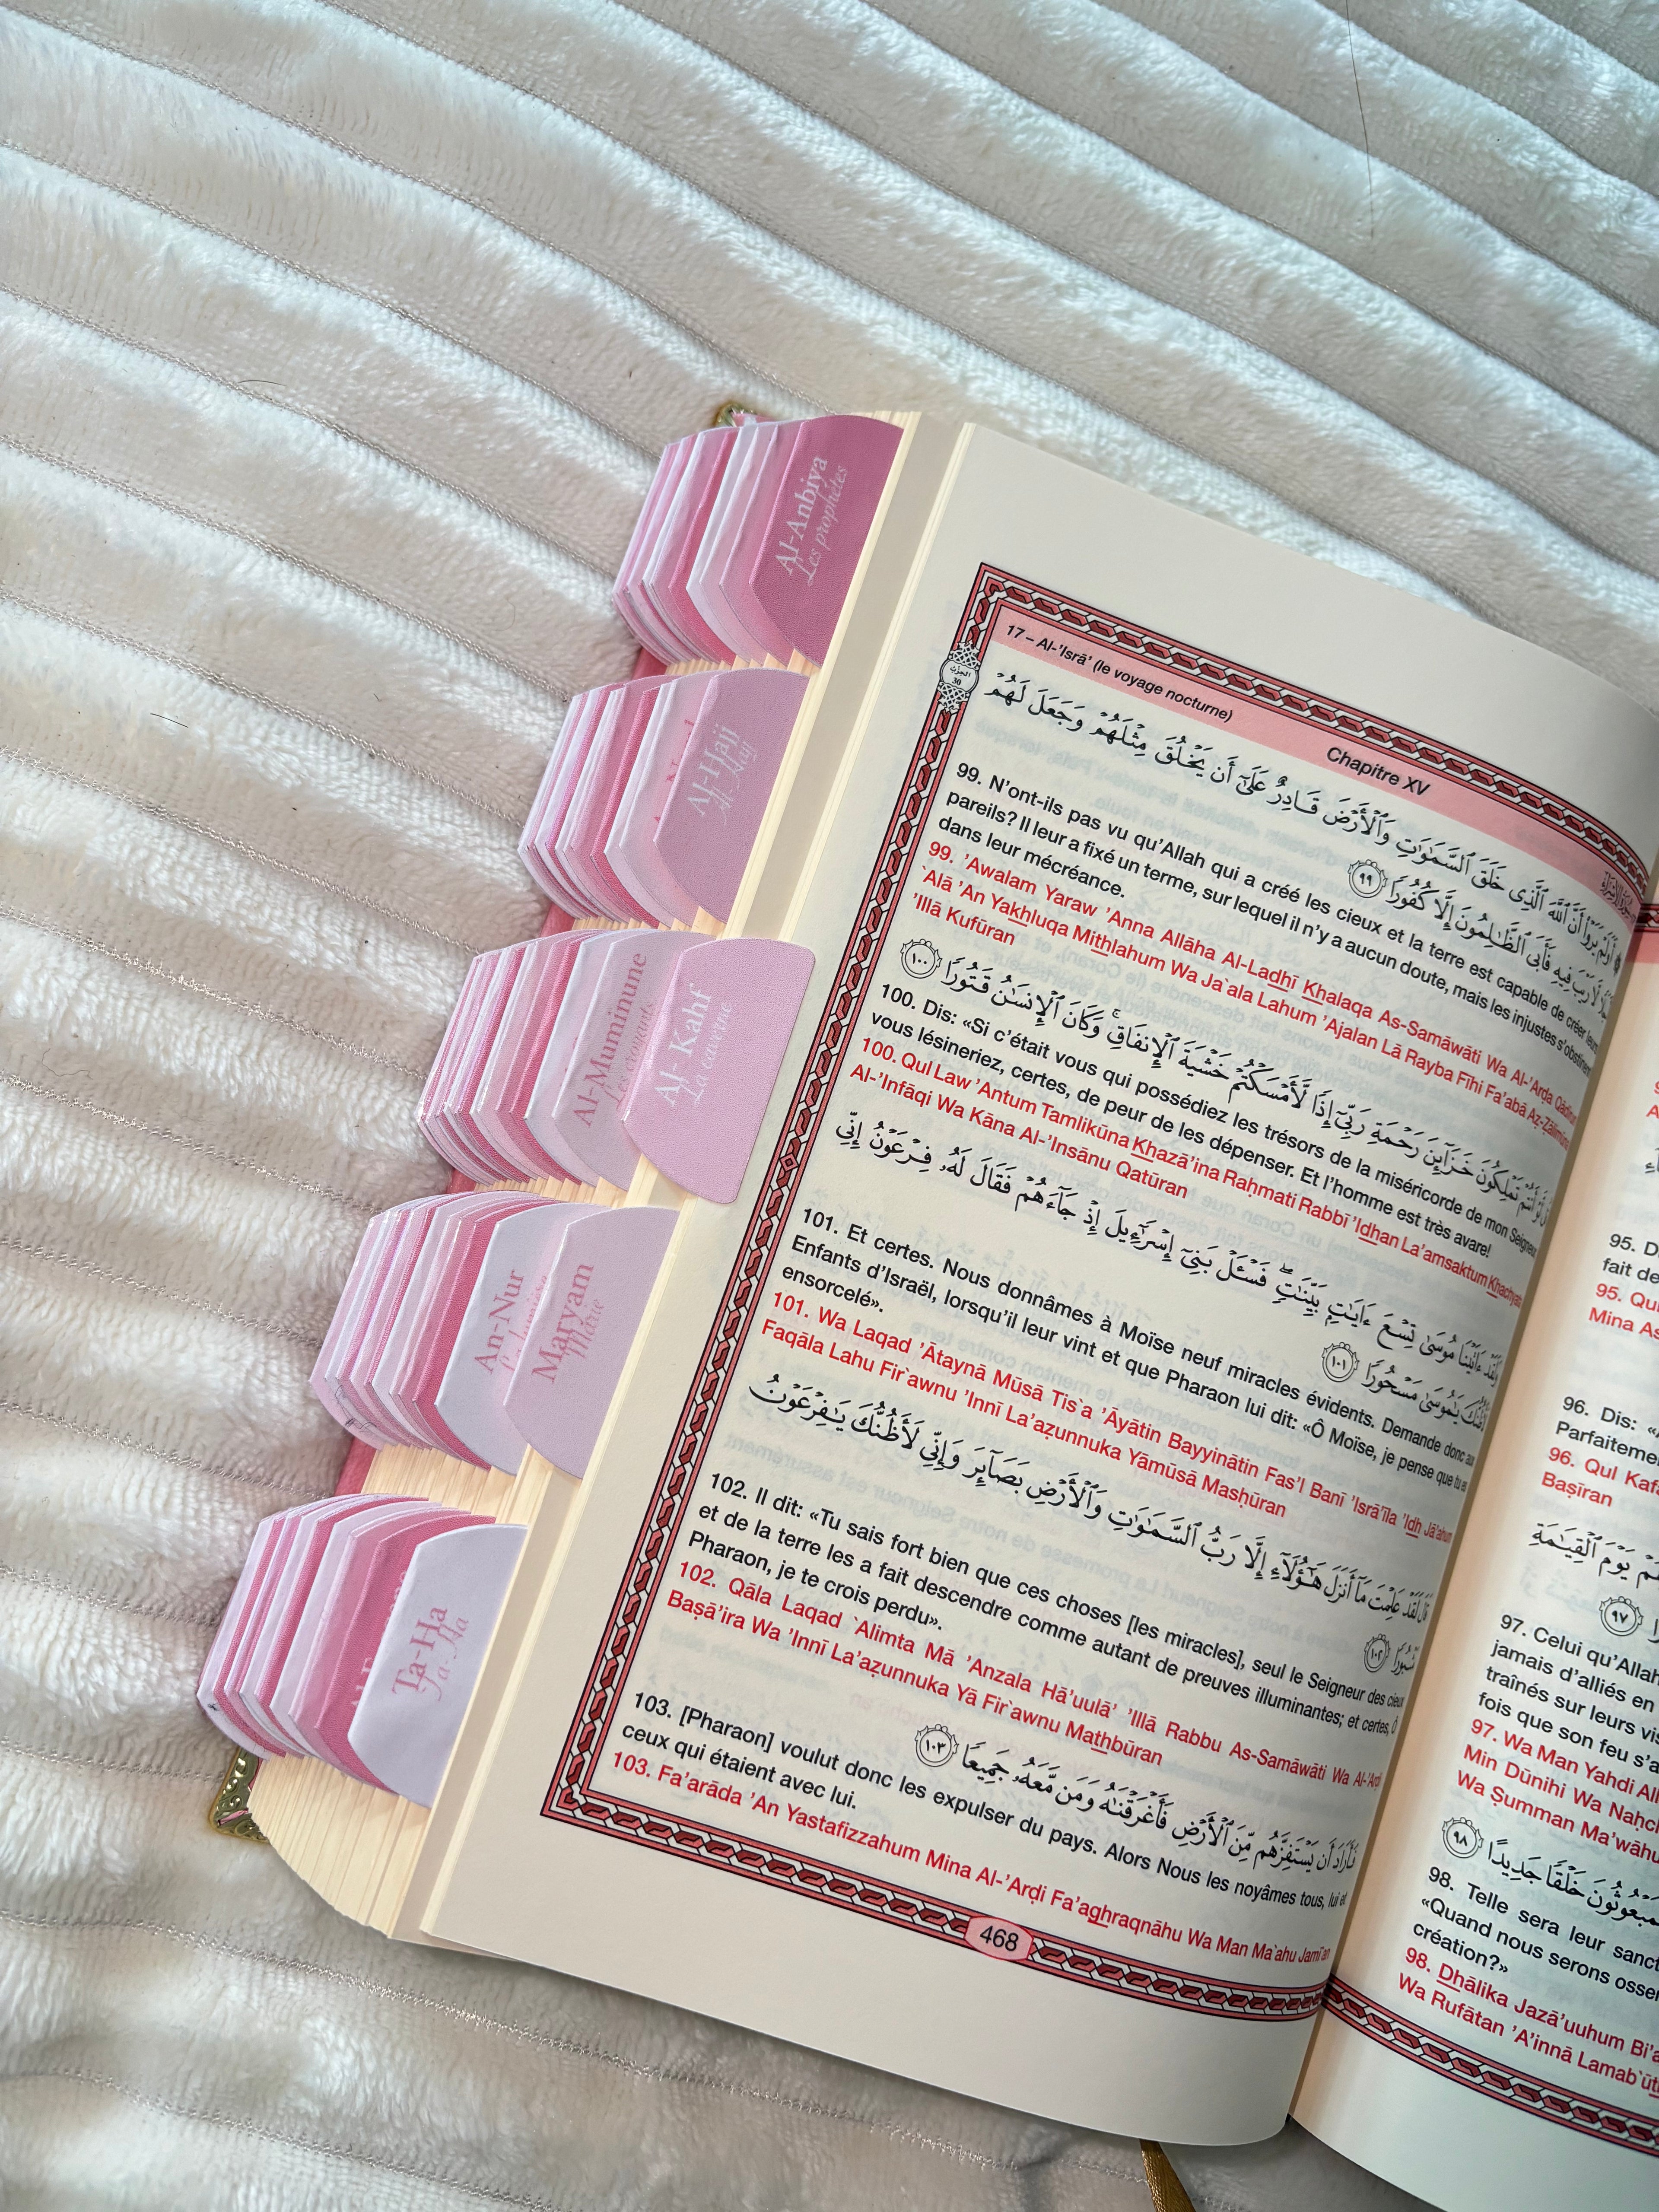 Al-Anbiya
Les prophètes
Al-Hajj
Al-Muminune
Les croyants
Al-Kahf
La caverne
An-Nur
Maryam
Marie
Ta-Ha
Ta-Ha
17 – Al-’Isrā’ (le voyage nocturne)
Chapitre XV
۞ أَوَلَمْ يَرَوْا۟ أَنَّ ٱللَّهَ ٱلَّذِى خَلَقَ ٱلسَّمَٰوَٰتِ وَٱلْأَرْضَ قَادِرٌ عَلَىٰٓ أَن يَخْلُقَ مِثْلَهُمْ وَجَعَلَ لَهُمْ
لَّا رَيْبَ فِيهِ فَأَبَى ٱلظَّٰلِمُونَ إِلَّا كُفُورًا ٩٩
99. N’ont-ils pas vu qu’Allah qui a créé les cieux et la terre est capable de créer leurs
pareils? Il leur a fixé un terme, sur lequel il n’y a aucun doute, mais les injustes s’obstinent
dans leur mécréance.
99. ’Awalam Yaraw ’Anna Allāha Al-Ladhī Khalaqa As-Samāwāti Wa Al-’Arđa Qādirun
`Alá ’An Yakhluqa Mithlahum Wa Ja`ala Lahum ’Ajalan Lā Rayba Fīhi Fa’abā Aẓ-Ẓālimūna
’Illā Kufūran
أَنتُمْ تَمْلِكُونَ خَزَآئِنَ رَحْمَةِ رَبِّىٓ إِذًا لَّأَمْسَكْتُمْ خَشْيَةَ ٱلْإِنفَاقِ ۚ وَكَانَ ٱلْإِنسَٰنُ قَتُورًا ١٠٠
100. Dis: «Si c’était vous qui possédiez les trésors de la miséricorde de mon Seigneur
vous lésineriez, certes, de peur de les dépenser. Et l’homme est très avare!
100. Qul Law ’Antum Tamlikūna Khazā’ina Raḥmati Rabbī ’Idhan La’amsaktum Khachyata
Al-’Infāqi Wa Kāna Al-’Insānu Qatūran
وَلَقَدْ ءَاتَيْنَا مُوسَىٰ تِسْعَ ءَايَٰتٍۭ بَيِّنَٰتٍ ۖ فَسْـَٔلْ بَنِىٓ إِسْرَٰٓءِيلَ إِذْ جَآءَهُمْ فَقَالَ لَهُۥ فِرْعَوْنُ إِنِّى
لَأَظُنُّكَ يَٰمُوسَىٰ مَسْحُورًا ١٠١
101. Et certes. Nous donnâmes à Moïse neuf miracles évidents. Demande donc aux
Enfants d’Israël, lorsqu’il leur vint et que Pharaon lui dit: «Ô Moïse, je pense que tu es
ensorcelé».
101. Wa Laqad ’Ātaynā Mūsā Tis`a ’Āyātin Bayyinātin Fas’l Banī ’Isrā’īla ’Idh Jā’ahum
Faqāla Lahu Fir`awnu ’Innī La’aẓunnuka Yāmūsā Masḥūran
قَالَ لَقَدْ عَلِمْتَ مَآ أَنزَلَ هَٰٓؤُلَآءِ إِلَّا رَبُّ ٱلسَّمَٰوَٰتِ وَٱلْأَرْضِ بَصَآئِرَ وَإِنِّى لَأَظُنُّكَ يَٰفِرْعَوْنُ
مَثْبُورًا ١٠٢
102. Il dit: «Tu sais fort bien que ces choses [les miracles], seul le Seigneur des cieux
et de la terre les a fait descendre comme autant de preuves illuminantes; et certes, Ô
Pharaon, je te crois perdu».
102. Qāla Laqad `Alimta Mā ’Anzala Hā’uulā’ ’Illā Rabbu As-Samāwāti Wa Al-’Arđi
Baṣā’ira Wa ’Innī La’aẓunnuka Yā Fir`awnu Mathbūran
فَأَرَادَ أَن يَسْتَفِزَّهُم مِّنَ ٱلْأَرْضِ فَأَغْرَقْنَٰهُ وَمَن مَّعَهُۥ جَمِيعًا ١٠٣
103. [Pharaon] voulut donc les expulser du pays. Alors Nous les noyâmes tous, lui et
ceux qui étaient avec lui.
103. Fa’arāda ’An Yastafizzahum Mina Al-’Arđi Fa’aghraqnāhu Wa Man Ma`ahu Jamī`an
468
fait de
95. Qul
Mina As
96. Dis:
Parfaiteme
96. Qul Kafá
Baṣīran
يَوْمَ ٱلْقِيَٰمَةِ
٩٧
97. Celui qu’Allah
jamais d’alliés en
traînés sur leurs vis
fois que son feu s’a
97. Wa Man Yahdi All
Min Dūnihi Wa Naḥch
Wa Ṣumman Ma’wāhu
خَلْقًا جَدِيدًا ٩٨
98. Telle sera leur sanct
«Quand nous serons osse
création?»
98. Dhālika Jazā’uuhum Bi’a
Wa Rufātan ’A’innā Lamab`ūt